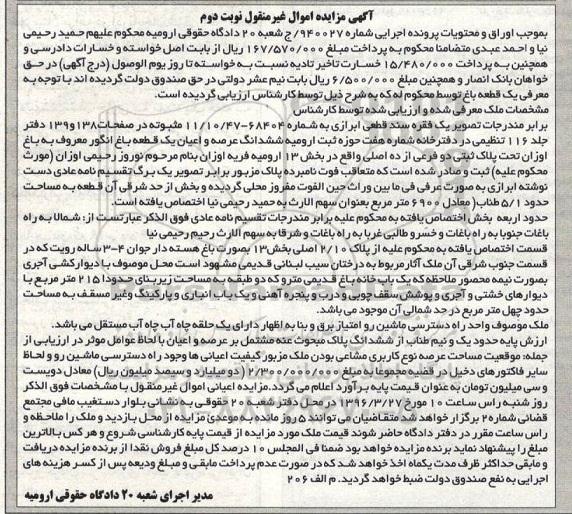 آگهی مزایده اموال غیرمنقول نوبت دوم
بموجب اوراق و محتویات پرونده اجرایی شماره ۹۴۰۰۲۷/ج شعبه ۲۰ دادگاه حقوقی ارومیه محکوم علیهم حمید رحیمی
نیا و احمد عبدی متضامنا محکوم به پرداخت مبلغ ۱۶۷/۵۷۰/۰۰۰ ریال از بابت اصل خواسته و خسارات دادرسی و
همچنین به پرداخت ۱۵/۴۸۰/۰۰۰ خسارت تاخیر تادیه نسبت به خواسته تا روز یوم الوصول (درج آگهی) در حق
خواهان بانک انصار و همچنین مبلغ ۶/۵۰۰/۰۰۰ ریال بابت نیم عشر دولتی در حق صندوق دولت گردیده اند با توجه به
معرفی یک قطعه باغ توسط محکوم له که به شرح ذیل توسط کارشناس ارزیابی گردیده است.
مشخصات ملک معرفی شده و ارزیابی شده توسط کارشناس
برابر مندرجات تصویر یک فقره سند قطعی ابرازی به شماره ۶۸۴۰۴-۱۱/۱۰/۴۷ مثبوته در صفحات ۱۳۸و۱۳۹ دفتر
جلد ۱۱۶ تنظیمی در دفترخانه شماره هفت حوزه ثبت ارومیه ششدانگ عرصه و اعیان یک قطعه باغ انگور معروف به باغ
اوزان تحت پلاک ثبتی دو فرعی از ده اصلی واقع در بخش ۱۳ ارومیه قریه اوزان بنام مرحوم نوروز رحیمی اوزان (مورث
محکوم علیه) ثبت و صادر شده است که متعاقب فوت نامبرده پلاک مزبور برابر تصویر یک برگ تقسیم نامه عادی دست
نوشته ابرازی به صورت عرفی فی ما بین وراث حین الفوت مفروز محلی گردیده و بخش از حد شرقی آن قطعه به مساحت
حدود ۵/۱ طناب (معادل ۶۹۰۰ متر مربع بعنوان سهم الارث به حمید رحیمی نیا اختصاص یافته است.
حدود اربعه بخش اختصاص یافته به محکوم علیه برابر مندرجات تقسیم نامه عادی فوق الذکر عبارتست از: شمالا به راه
باغات جنوبا به راه باغات و خسرو طالبی غربا به راه باغات و شرقا به سهم الارث رحیم رحیمی نیا
قسمت اختصاص یافته به محکوم علیه از پلاک ۲/۱۰ اصلی بخش۱۳ بصورت باغ هسته دار جوان ۴-۳ ساله رویت که در
قسمت جنوب شرقی آن ملک آثار مربوط به درختان سیب لبنانی قدیمی مشهود است محل موصوف با دیوارکشی آجری
بصورت نیمه محصور ملاحظه که یک باب خانه باغ قدیمی مترو که دو طبقه به مساحت زیربنای حدودا ۲۱۵ متر مربع با
دیوارهای خشتی و آجری و پوشش سقف چوبی و درب و پنجره آهنی و یک باب انباری و پارکینگ وغیر مسقف به مساحت
حدود چهل متر مربع در حد شمالی آن موجود می باشد.
ملک موصوف واحد راه دسترسی ماشین رو امتیاز برق و بنا به اظهار دارای یک حلقه چاه آب مستقل می باشد.
ارزش پایه حدود یک و نیم طناب از ششدانگ پلاک مبحوث عنه مشتمل بر عرصه و اعیان با لحاظ عوامل موثر در ارزیابی از
جمله: موقعیت مساحت عرصه نوع کاربری مشاعی بودن ملک مزبور کیفیت اعیانی ها وجود راه دسترسی ماشین رو و لحاظ
سایر فاکتورهای دخیل در قضیه مجموعا به مبلغ ۲/۳۰۰/۰۰۰/۰۰۰ (دو میلیارد و سیصد میلیون ریال) معادل دویست
و سی میلیون تومان به عنوان قیمت پایه برآورد اعلام می گردد. مزایده اعیانی اموال غیرمنقول با مشخصات فوق الذکر
روز شنبه راس ساعت ۱۰ مورخ ۱۳۹۶/۳/۲۷ در محل دفتر شعبه ۲۰ حقوقی به نشانی بلوار دستغیب مافی مجتمع
قضائی شماره ۲ برگزار خواهد شد متقاضیان می توانند ۵ روز مانده به موعدی مزایده از محل بازدید و ملک را ملاحظه و
راس ساعت مقرر در دفتر دادگاه حاضر شوند قیمت ملک مورد مزایده از قیمت پایه کارشناسی شروع و هر کس بالاترین
مبلغ را پیشنهاد نماید برنده مزایده خواهد بود ضمنا فی المجلس ۱۰ درصد کل مبلغ فروش نقدا از برنده مزایده دریافت
و مابقی حداکثر ظرف مدت یکماه اخذ خواهد شد که در صورت عدم پرداخت مابقی و مبلغ ودیعه پس از کسر هزینه های
اجرایی به نفع صندوق دولت ضبط خواهد گردید. م الف ۲۰۶
مدیر اجرای شعبه ۲۰ دادگاه حقوقی ارومیه